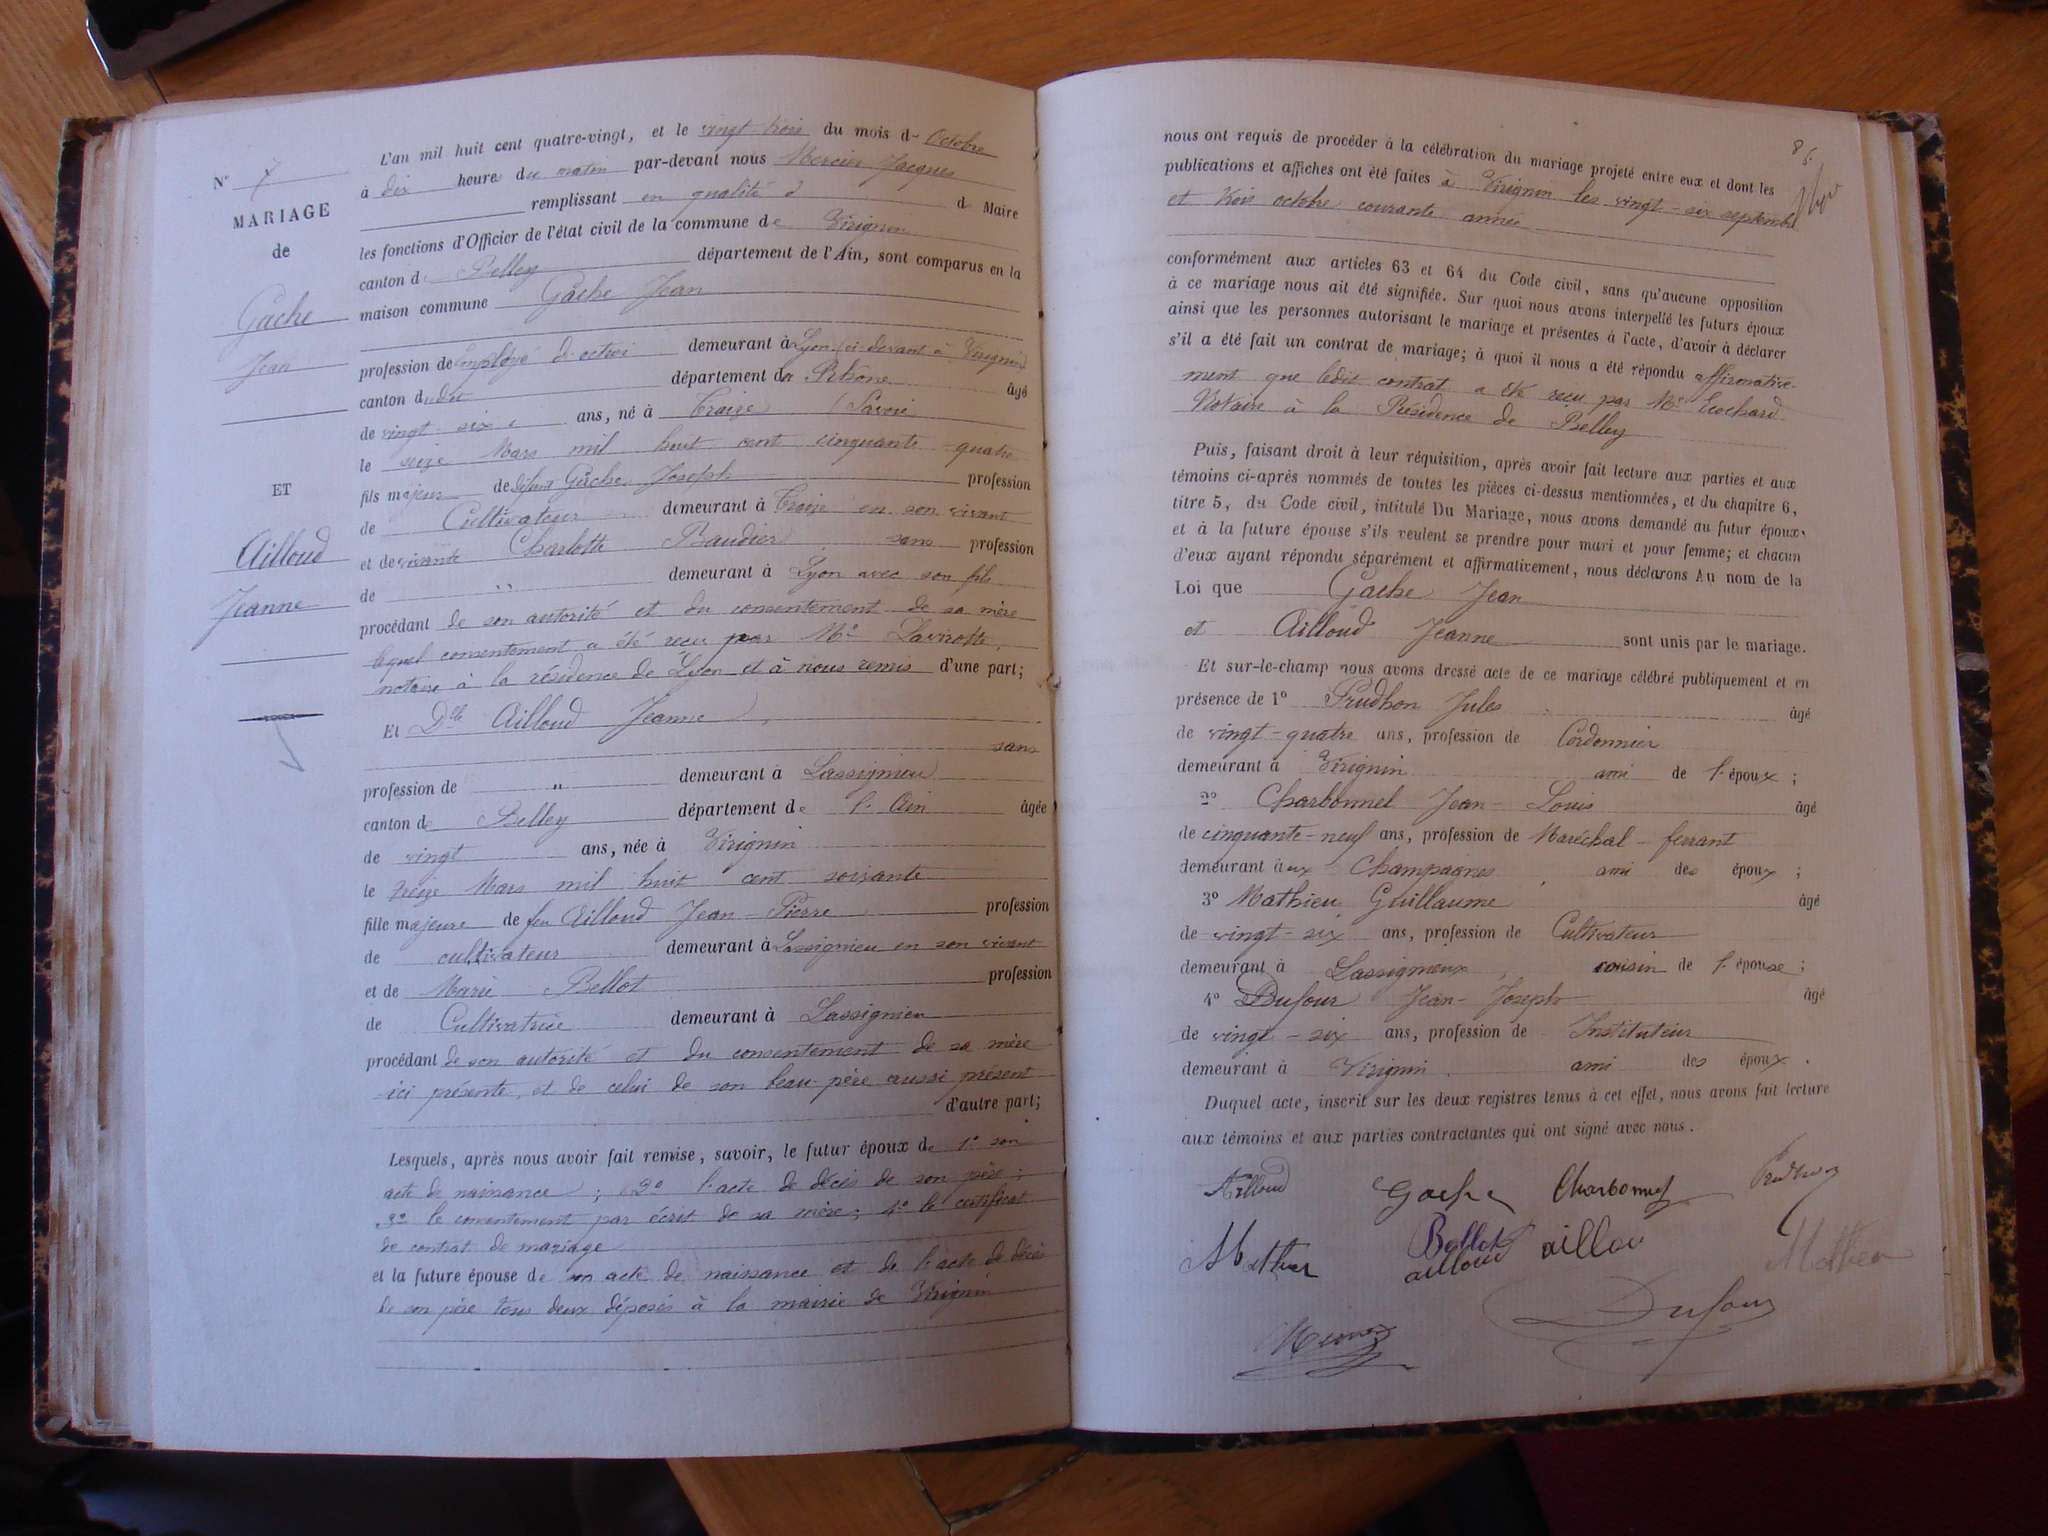 N° 7
MARIAGE
de
Gâche
Jean
ET
Ailloud
Jeanne
L'an mil huit cent quatre-vingt, et le vingt trois du mois d- Octobre
à dix heures du matin par-devant nous Mercier Jacques
remplissant en qualité d de Maire
les fonctions d'Officier de l'état civil de la commune de Virignin
canton de Belley département de l'Ain, sont comparus en la
maison commune Gâche Jean
profession de employé d'octroi demeurant à Lyon (ci-devant à Virignin)
canton dudit département du Rhône âgé
de vingt-six ans, né à Traize (Savoie
le seize Mars mil huit cent cinquante-quatre
fils majeur de défunt Gâche Joseph profession
de Cultivateur demeurant à Traize en son vivant
et de vivante Charlotte Baudier sans profession
de " demeurant à Lyon avec son fils
procédant de son autorité et du consentement de sa mère
lequel consentement a été reçu par Me Lavirotte,
notaire à la résidence de Lyon et à nous remis d'une part;
Et Dlle Ailloud Jeanne,
sans
profession de " demeurant à Lassignieu
canton de Belley département de l'Ain âgée
de vingt ans, née à Virignin
le treize Mars mil huit cent soixante
fille majeure de feu Ailloud Jean-Pierre profession
de cultivateur demeurant à Lassignieu en son vivant
et de Marie Bellot profession
de Cultivatrice demeurant à Lassignieu
procédant de son autorité et du consentement de sa mère
ici présente, et de celui de son beau-père aussi présent
d'autre part;
Lesquels, après nous avoir fait remise, savoir, le futur époux de 1° son
acte de naissance; 2° l'acte de décès de son père;
3° le consentement par écrit de sa mère; 4° le certificat
de contrat de mariage
et la future épouse de son acte de naissance et de l'acte de décès
de son père tous deux déposés à la mairie de Virignin
85
nous ont requis de procéder à la célébration du mariage projeté entre eux et dont les
publications et affiches ont été faites à Virignin les vingt-six septembre
et trois octobre courante année
conformément aux articles 63 et 64 du Code civil, sans qu'aucune opposition
à ce mariage nous ait été signifiée. Sur quoi nous avons interpellé les futurs époux
ainsi que les personnes autorisant le mariage et présentes à l'acte, d'avoir à déclarer
s'il a été fait un contrat de mariage; à quoi il nous a été répondu affirmative-
ment que ledit contrat a été reçu par Me Trochard
Notaire à la Résidence de Belley
Puis, faisant droit à leur réquisition, après avoir fait lecture aux parties et aux
témoins ci-après nommés de toutes les pièces ci-dessus mentionnées, et du chapitre 6,
titre 5, du Code civil, intitulé Du Mariage, nous avons demandé au futur époux
et à la future épouse s'ils veulent se prendre pour mari et pour femme; et chacun
d'eux ayant répondu séparément et affirmativement, nous déclarons Au nom de la
Loi que Gâche Jean
et Ailloud Jeanne sont unis par le mariage.
Et sur-le-champ nous avons dressé acte de ce mariage célébré publiquement et en
présence de 1° Prudhon Jules âgé
de vingt-quatre ans, profession de Cordonnier
demeurant à Virignin ami de l'époux;
2° Charbonnel Jean-Louis âgé
de cinquante-neuf ans, profession de Maréchal-ferrant
demeurant aux Champagnes, ami des époux;
3° Mathieu Guillaume âgé
de vingt-six ans, profession de Cultivateur
demeurant à Lassignieux, cousin de l'épouse;
4° Dufour Jean-Joseph âgé
de vingt-six ans, profession de Instituteur
demeurant à Virignin. ami des époux.
Duquel acte, inscrit sur les deux registres tenus à cet effet, nous avons fait lecture
aux témoins et aux parties contractantes qui ont signé avec nous.
Ailloud Gache Charbonnel Prudhon
Mathieu Bellot aillou Mathieu
ailloud
Dufour
Mercier